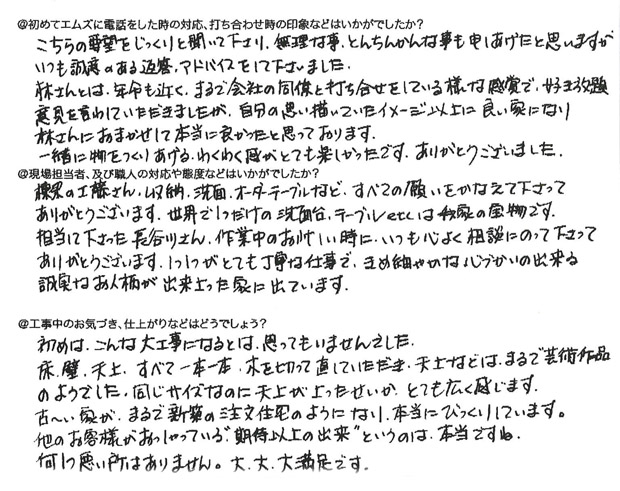 @初めてエムズに電話をした時の対応、打ち合わせ時の印象などはいかがでしたか?
こちらの要望をじっくりと聞いて下さり、無理な事、とんちんかんな事も申しあげたと思いますが
いつも誠意のある返答、アドバイスをして下さいました。
林さんとは、年令も近く、まるで会社の同僚と打ち合せをしている様な感覚で、好き放題
意見を言わしていただきましたが、自分の思い描いていたイメージ以上に良い家になり
林さんにおまかせして本当に良かったと思っております。
一緒に物をつくりあげる、わくわく感がとても楽しかったです。ありがとうございました。
@現場担当者、及び職人の対応や態度などはいかがでしたか?
の工藤さん、収納、洗面、オーダーテーブルなど、すべての願いをかなえて下さって
ありがとうございます。世界で1つだけの洗面台、テーブルetcは我家の宝物です。
担当して下さった長谷川さん、作業中のお忙しい時に、いつも心よく相談にのって下さって
ありがとうございます。1つ1つがとても丁寧な仕事で、きめ細やかな心づかいの出来る
誠実なお人柄が出来上った家に出ています。
@工事中のお気づき、仕上がりなどはどうでしょう?
初めは、こんな大工事になるとは、思ってもいませんでした。
床、壁、天上、すべて一本一本、木を切って直していただき、天上などは、まるで芸術作品
のようでした。同じサイズなのに天上が上ったせいか、とても広く感じます。
古〜い家が、まるで新築の注文住宅のようになり、本当にびっくりしています。
他のお客様がおっしゃっている"期待以上の出来"というのは、本当ですね。
何1つ悪い所はありません。大、大、大満足です。